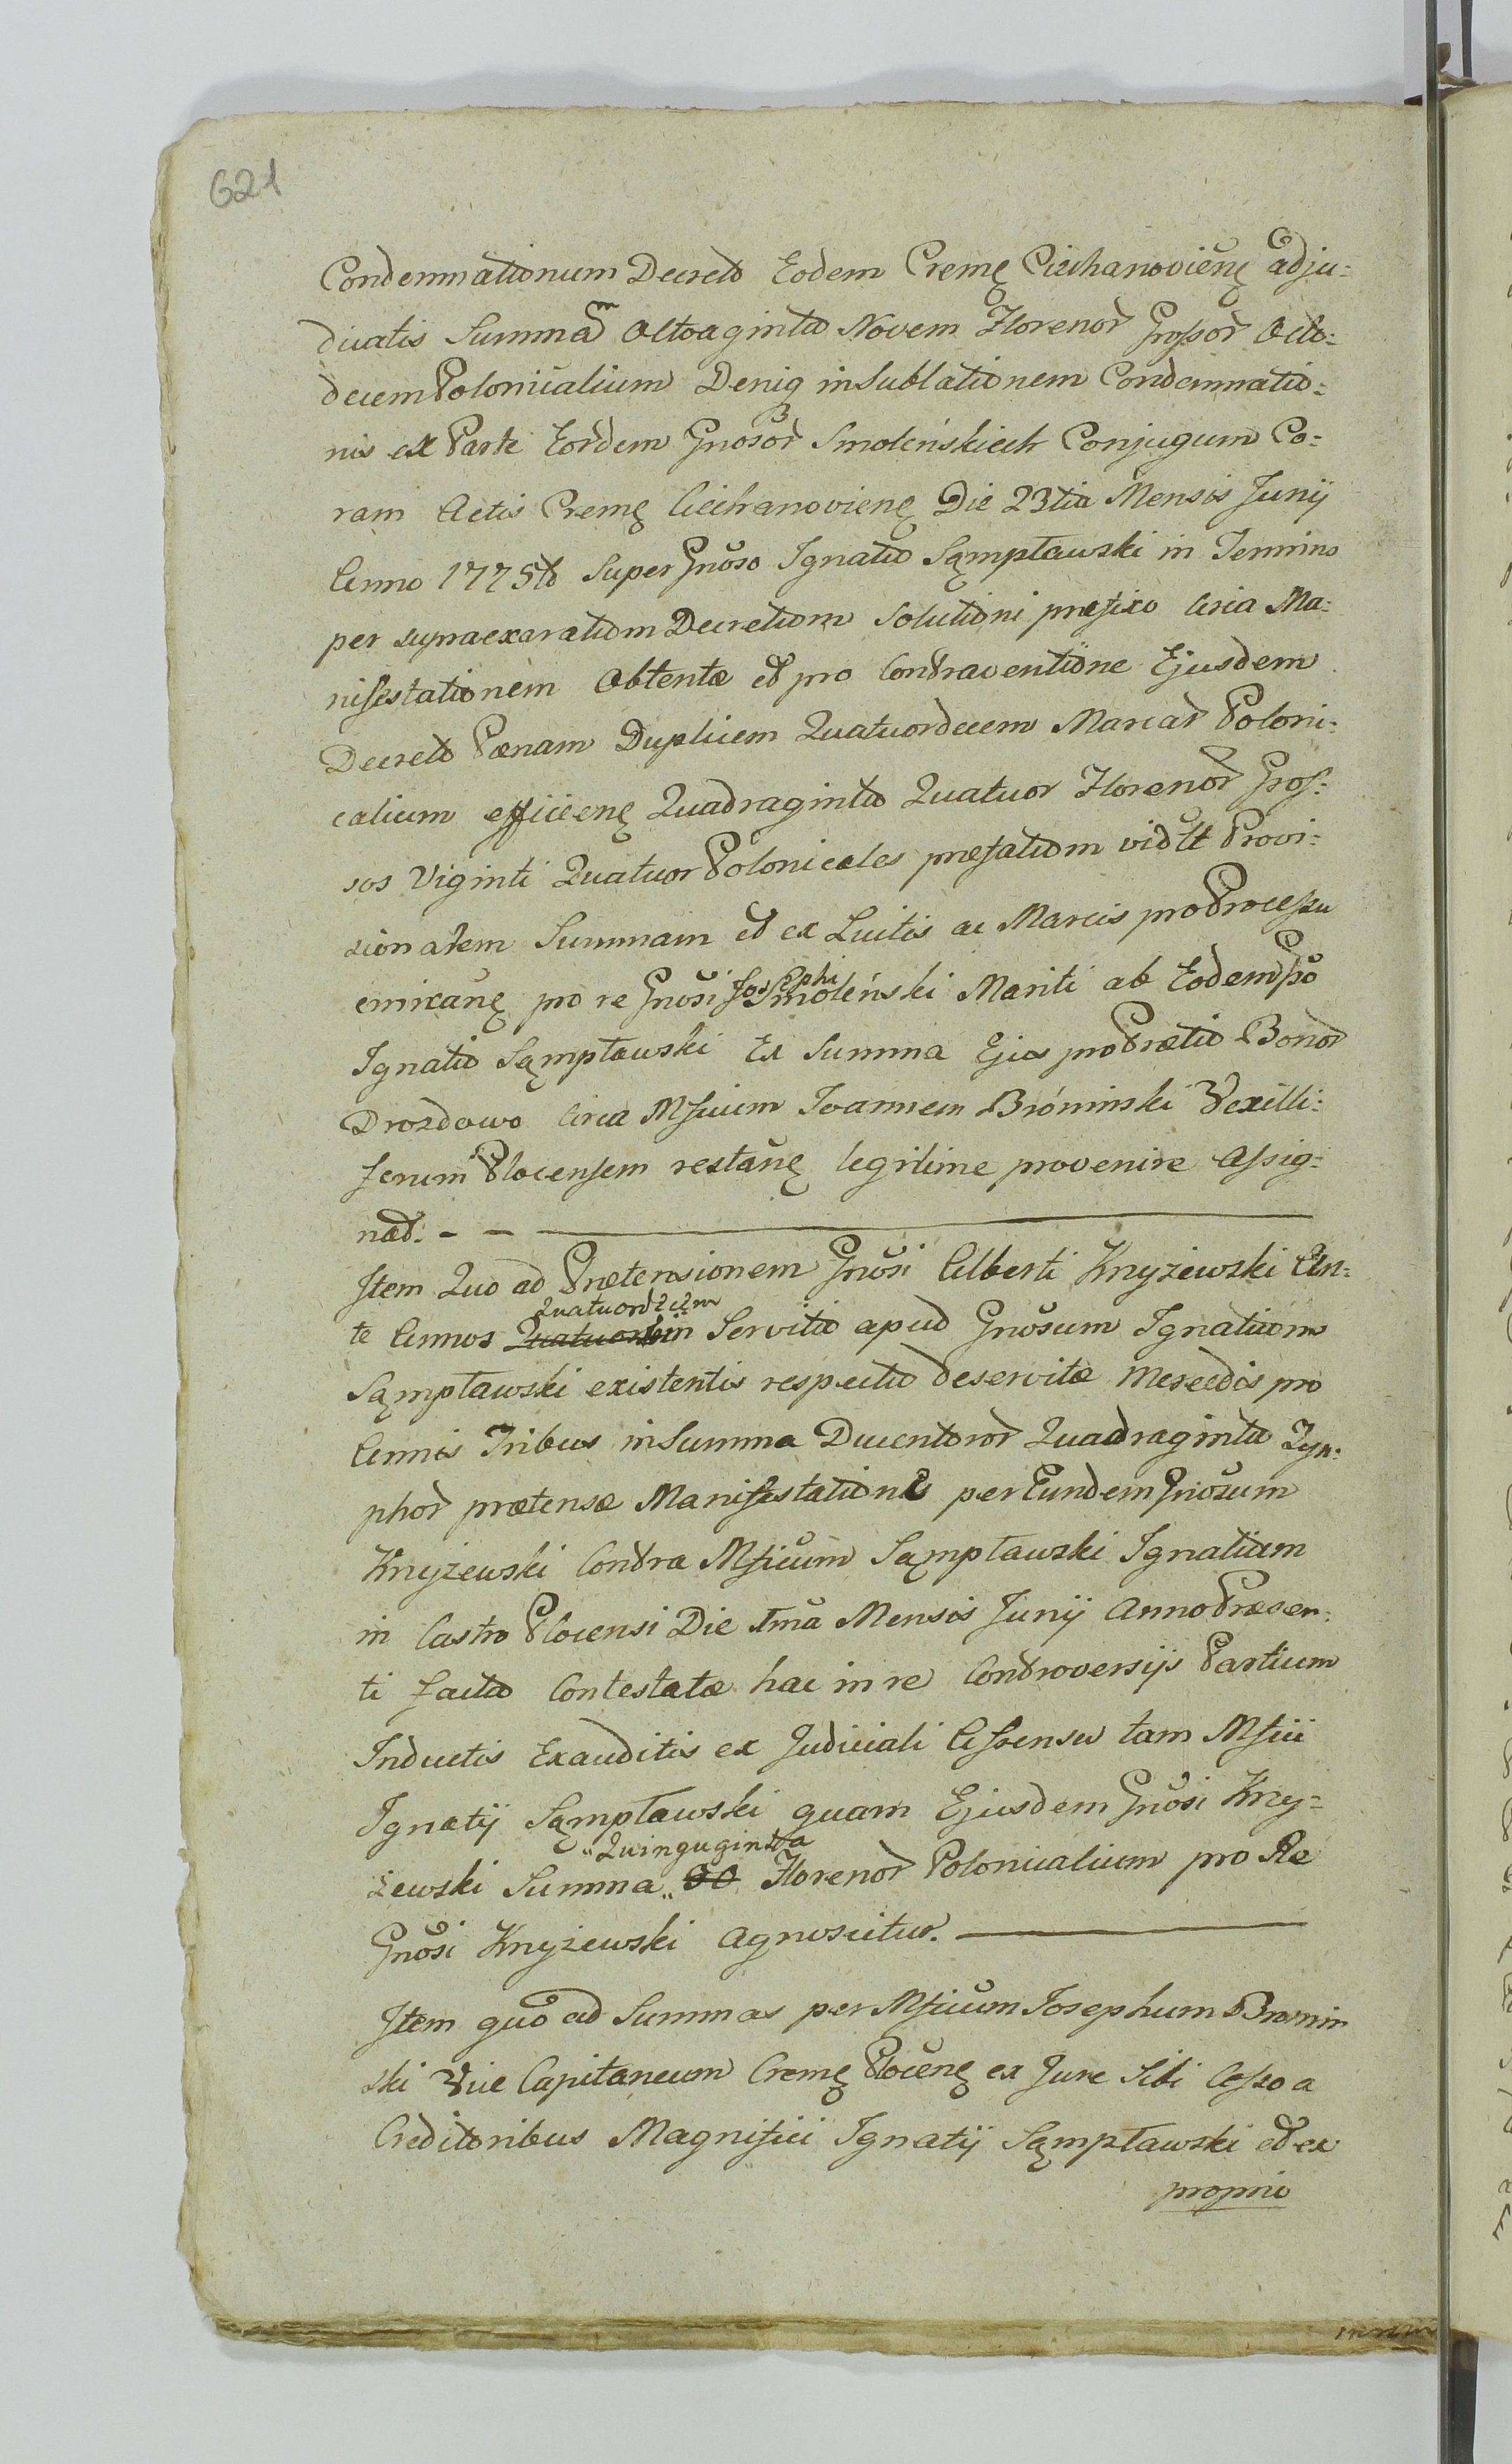 621
Condemnationum Decreto Eodem Cremę Ciechanovienę adju:
dicatis Summam Octoaginta Novem Florenor Grossor Octo:
decem Polonicalium Deniq in Sublationem Condemnatio:
nis ex Parte Eordem Gnosor Smoleńskich Conjugum Co:
ram Actis Cremę Ciechanovienę Die 23tia Mensis Junij
Anno 1775to Super Gnoso Ignatio Sąmpławski in Termino
per supraexaratum Decretum Solutioni præfixo Circa Ma:
nifestationem Obtentæ et pro Contraventione Ejusdem
Decreto Pænam Duplicem Quatuordecem Marcar Poloni:
calium efficienę Quadraginta Quatuor Florenor Gros:
sos Viginti Quatuor Polonicales præfatum vidlt Provi:
sionalem Summam et ex Luitis ac Marcis pro Processu
emixanę pro re Gnosi Josephi Smoleński Mariti ab Eodem Gso
Ignatio Sąmpławski Ex Summa Ejus pro Prætio Bonor
Drozdowo Circa Mficum Joannem Bróminski Vexilli:
ferum Plocensem restanę legitime provenire Assig:
nat: - - —
Item Quo ad Prætensionem Gnosi Alberti Knyżewski An:
te Annos Quatuordecim in Servitio apud Gnosum Ignatium
Sąmpławski existentis respectu deservitæ Mercedis pro
Annis Tribus in Summa Ducentoror Quadraginta Tyn:
phor prætensæ Manifestatione per Eundem Gnosum
Knyżewski Contra Mficum Sąmpławski Ignatium
in Castro Plocensi Die 1ma Mensis Junij Anno Præsen:
ti facta Contestatæ hac in re Controversijs Partium
Inductis Exauditis ex Judiciali Assensu tam Mfici
Ignatij Sąmpławski quam Ejusdem Gnosi Kny=
żewski Summa „Quinquginta 50 Florenor Polonicalium pro Re
Gnosi Knyżewski Agnoscitur. —
Item quo ad Summas per Mficum Josephum Bromin
ski Vice Capitaneum Cremę Plocenę ex Jure Sibi Cesso a
Creditoribus Magnifici Ignatij Sąmpławski et ex
proprio